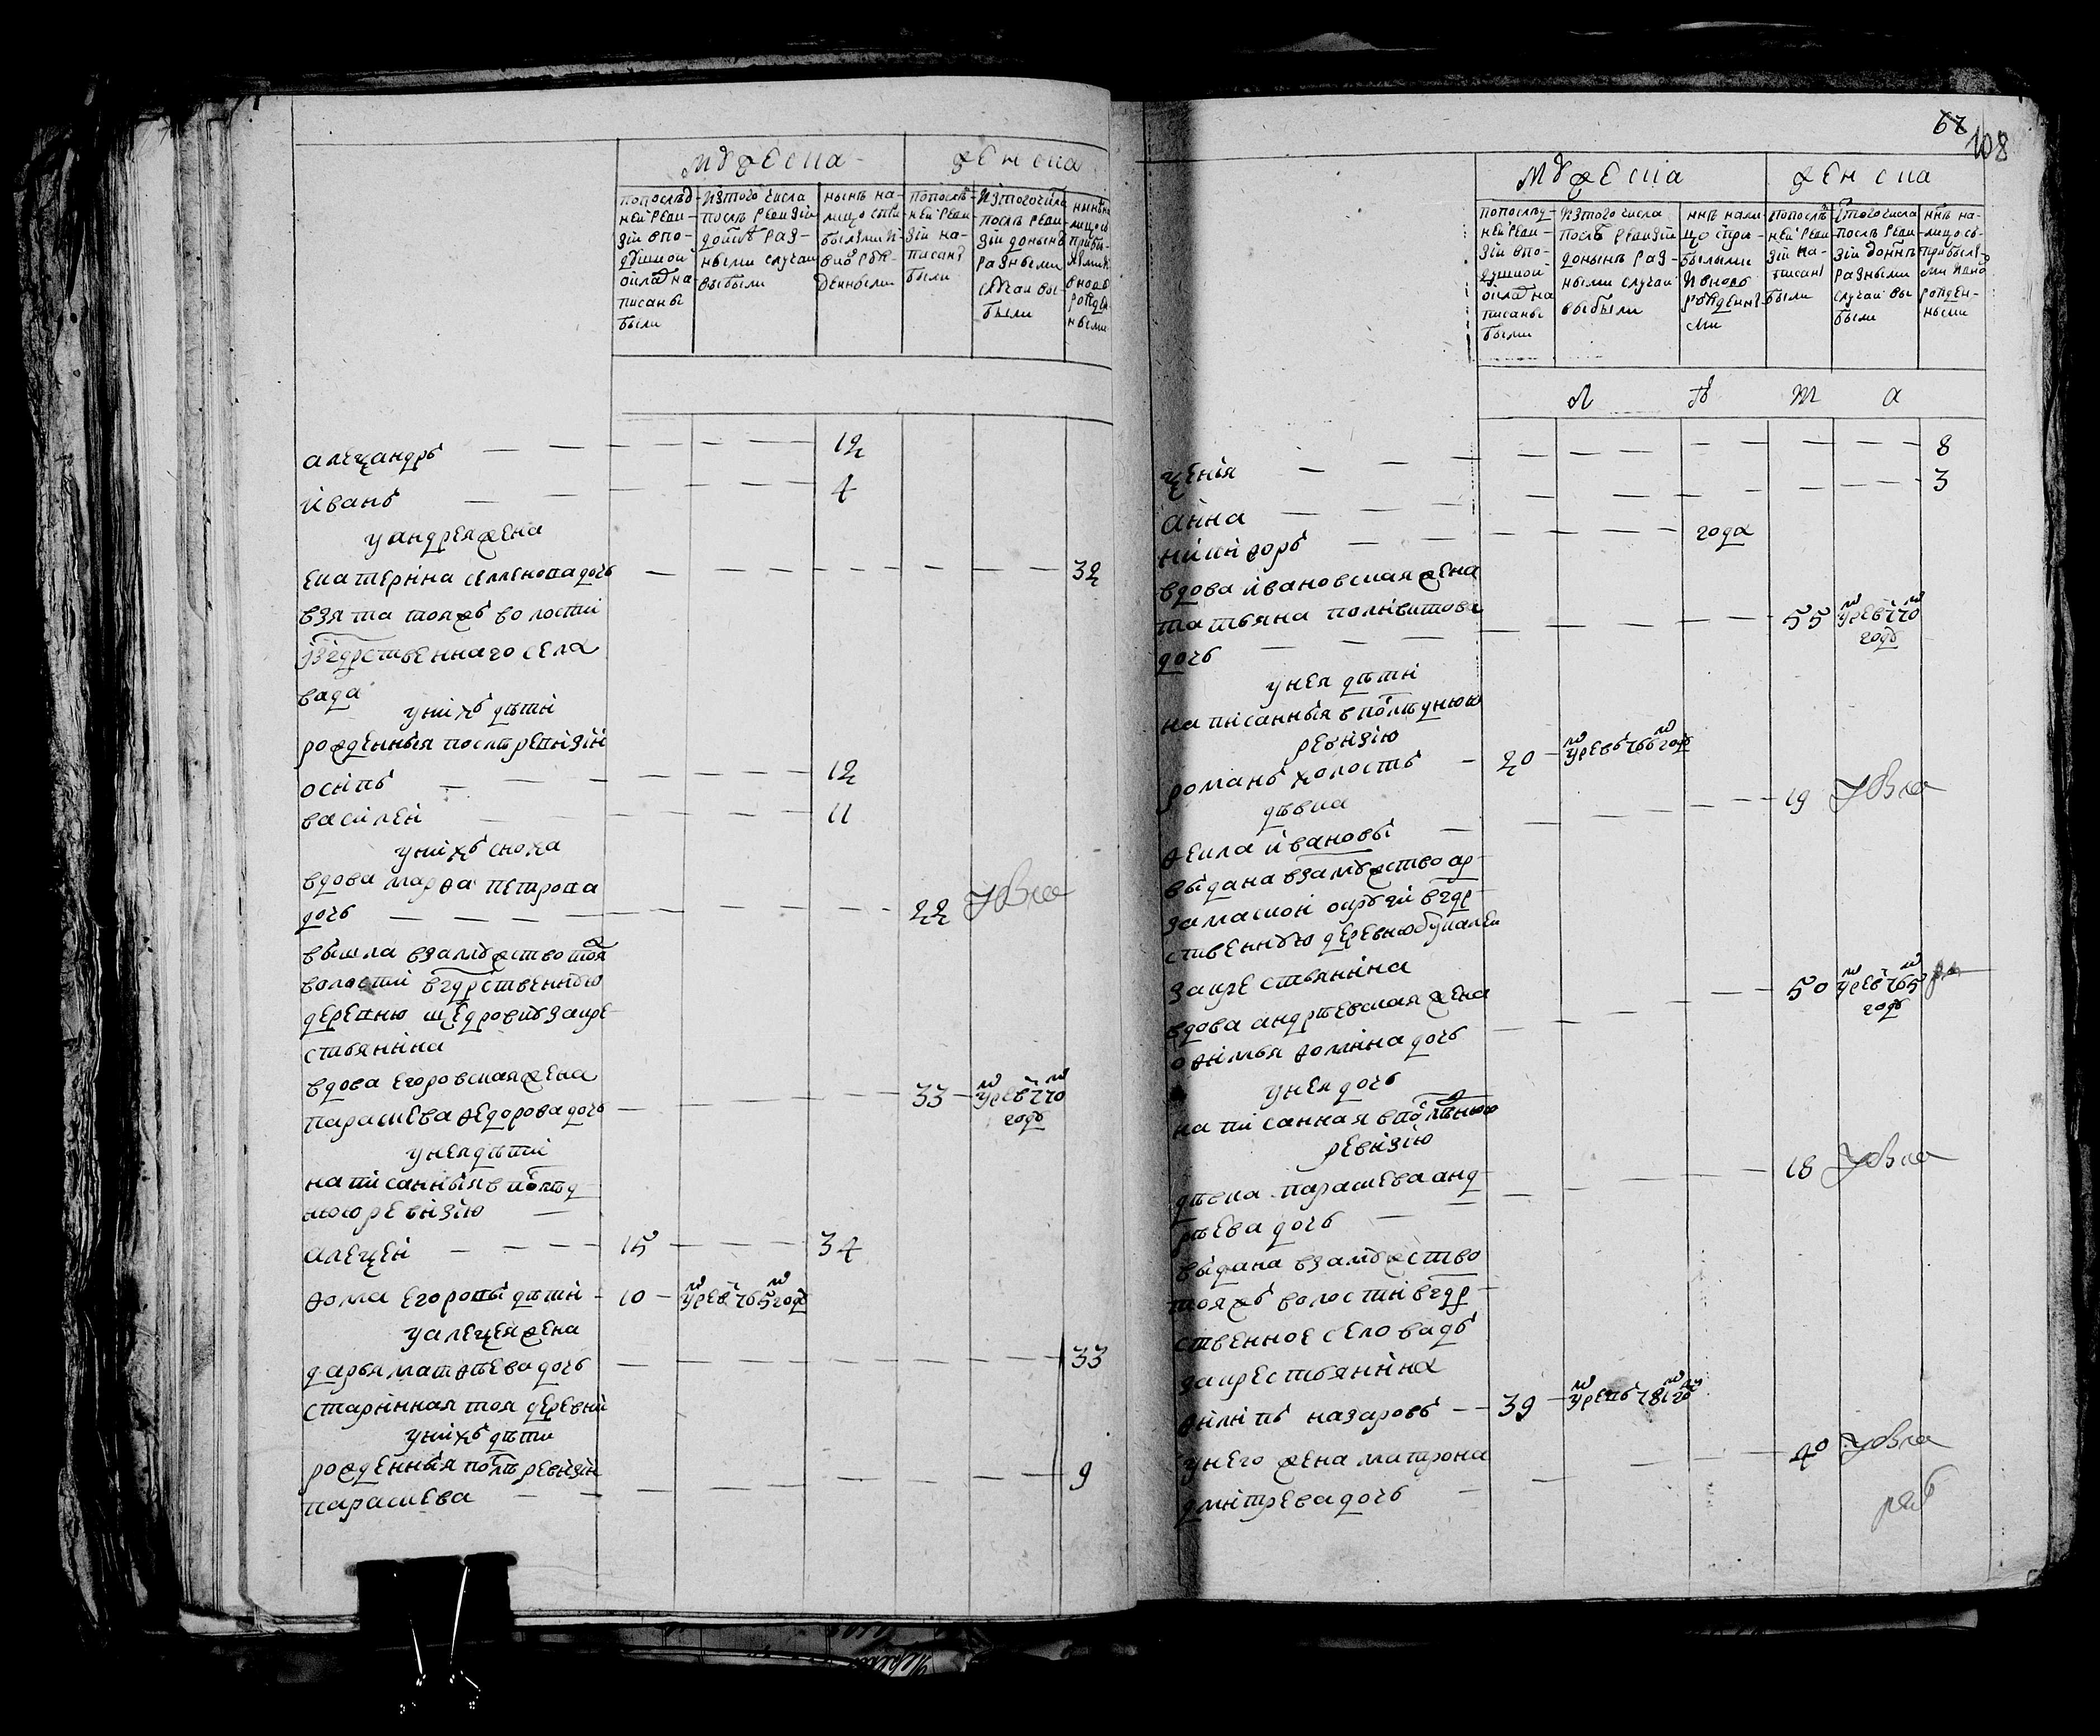 мужеска
женска
попослѣд-
ней реви-
зіи впо-
душной
окладъ на-
писаны
были
изтого числа
послѣ ревизіи
донынѣ раз-
ными случаи
выбыли
нынѣ на-
лицо спри
былыми и-
вновь рож-
денными
попослѣ-
ней реви-
зіи на-
писаны
были
изтого числа
послѣ реви-
зіи донынѣ
разными
случаи вы-
были
нынѣ на
лицо съ
прибы-
лыми
вново
рожден
ными
александръ 12
иванъ 4
у андрея жена
екатерина семенова дочь 32
взята тояжъ волости
изгдрственнаго села
вада
унихъ дѣти
рожденныя послѣ ревизіи
осипъ 12
василей 11
унихъ сноха
вдова марѳа петрова
дочь 22
вышла взамужство тоя
волости вгдрственную
деревню щедровку закре
стьянина
вдова егоровская жена
парасковья ѳедорова дочь 33 умре в 770
годъ
унея дѣти
написанныя в послѣд
нюю ревизію
алексей 15 34
ѳома егоровы дѣти 10 умре в 765 годъ
у алексея жена
дарья матѳѣева дочь 33
старинная тоя деревни
унихъ дѣти
рожденныя послѣ ревизіи
парасковья 9
67
108
мужеска
женска
попослед-
ней реви-
зіи впо-
душной
окладъ на
писаны
были
изтого числа
послѣ ревизіи
донынѣ раз-
ными случаи
выбыли
ннѣ нали
цо спри-
былыми
и вновь
рожденны
ми
попослѣ
ней реви
зіи на-
писаны
были
изтого числа
послѣ реви
зіи доннѣ
разными
случаи вы
были
ннѣ на-
лицо съ-
прибылы-
ми вново
рожден-
ными
л ѣ т а
ксенія 8
анна 3
никиѳоръ года
вдова ивановская жена
татьяна поликитова
дочь 55 умре в 770
годъ
унея дѣти
написанныя в послѣднюю
ревизію
романъ холостъ 20 умре въ 766 годъ
дѣвка
ѳекла ивановы 19
выдана взамужство ар-
замаской округи вгдр
ственную деревню
закрестьянина
вдова андрѣевская жена
оѳимья ѳомина дочь 50 умре в 765
годъ
унея дочь
написанная в послѣднюю
ревизію
дѣвка парасковья анд-
рѣева дочь 18
выдана взамужство
тояжъ волости вгдр
ственное село вадъ
закрестьянина
ѳилипъ назаровъ 39 умре въ 781 го
унего жена матрона
дмитрева дочь 40